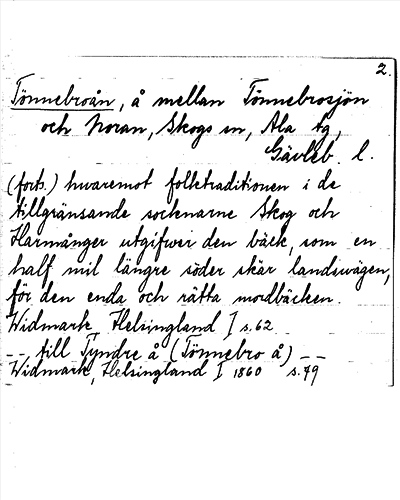 2.
Tönnebroån, å mellan Tönnebrosjön
och Noran, Skogs sn, Ala tg,
Gävleb. l.
(forts.) hvaremot folktraditionen i de
tillgränsande socknarne Skog och
Harmånger utgifver den bäck, som en
half mil längre söder skär landsvägen,
för den enda och rätta mordbäcken.
Widmark, Helsingland I s. 62.
-- till Tyndre å (Tönnebro å) --
Widmark, Helsingland I 1860 s. 79